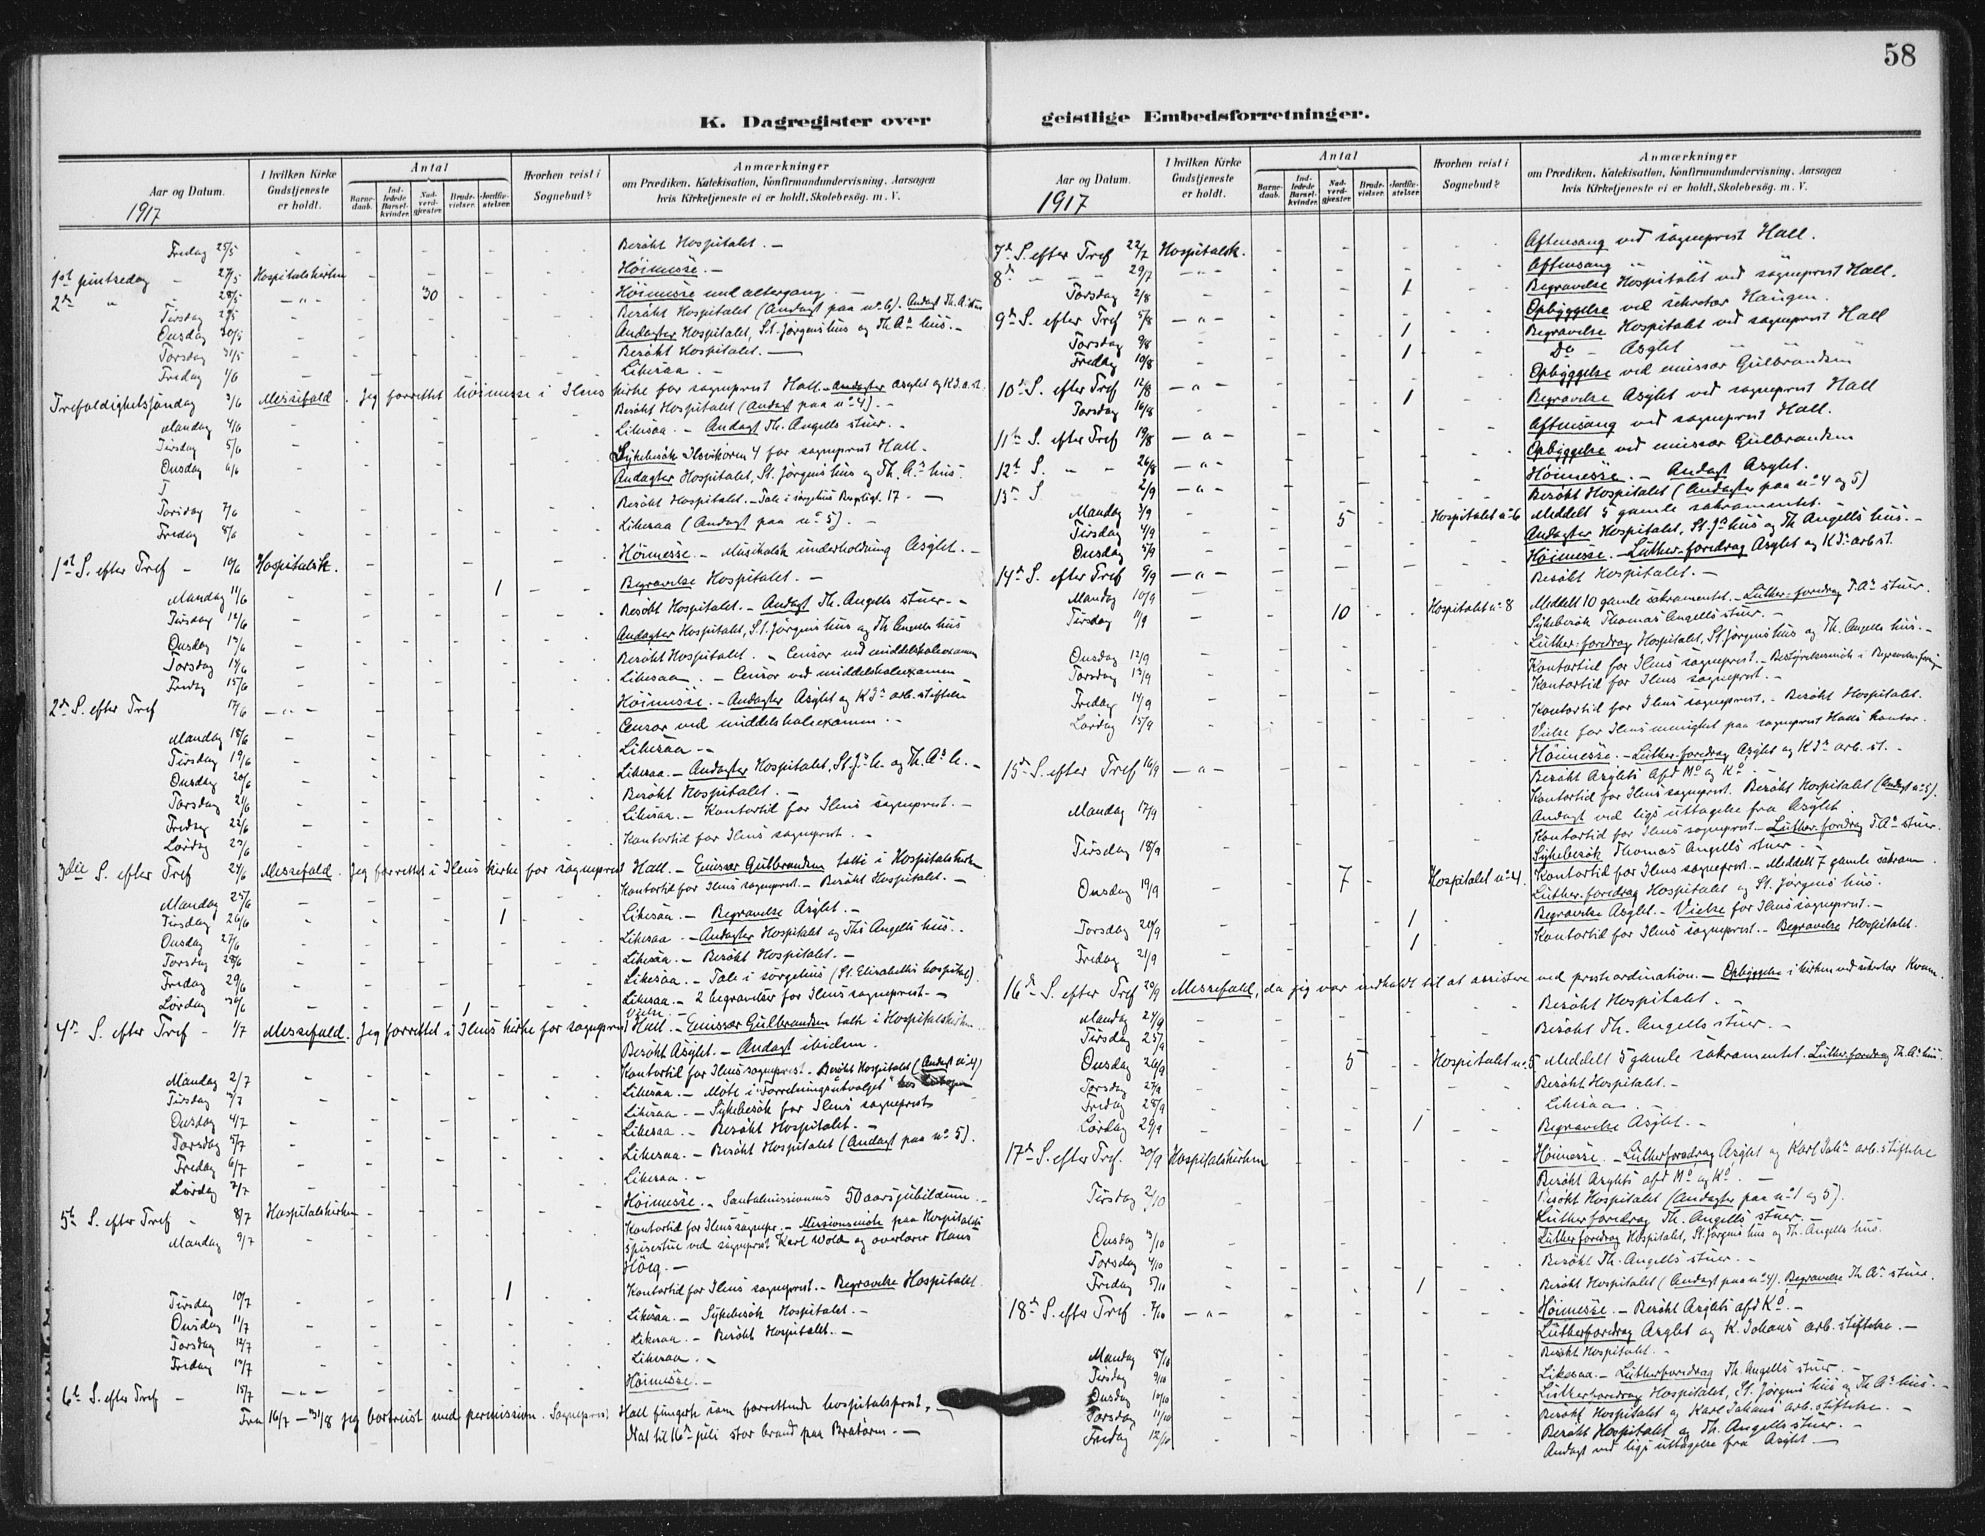 58
K. Dagregister over
geistlige Embedsforretninger.
Aar og Datum.
1917
I hvilken Kirke Gudstjeneste er holdt.
Antal
Barnedaab.
Indledede Barselkvinder.
Nadverdgjester.
Brudevielser.
Jordfæstelser.
Hvorhen reist i Sognebud?
Anmærkninger
om Prædiken, Katekisation, Konfirmandundervisning, Aarsagen
hvis Kirketjeneste ei er holdt, Skolebesøg. m. V.
Fredag 25/5 Besøkt Hospitalet. —
1st pintsedag - 27/5 Hospitalskirken Høimesse. —
2den " - 28/5 — " — 30 Høimesse med altergang. —
Tirsdag 29/5 Besøkt Hospitalet (Andagt paa no 6).
Onsdag 30/5 Andagter Hospitalet, St. Jørgens hus og Th. As hus. —
Torsdag 31/5 Besøkt Hospitalet. —
Fredag 1/6 Likesaa. —
Trefoldighetssøndag 3/6 Messefald. Jeg forrettet høimesse i Ilens kirke for sogneprest Hall. — Andagter Asylet og K J. a. st.
Mandag 4/6 Besøkt Hospitalet (Andagt paa no 4). —
Tirsdag 5/6 Likesaa. — Andagt Th. Angells stuer. —
Onsdag 6/6 Sykebesøk Ilsvikøren 4 for sogneprest Hall.
Andagter Hospitalet, St. Jørgens hus og Th. As hus.
Torsdag 7/6 Besøkt Hospitalet. — Tale i sørgehus 17. —
Fredag 8/6 Likesaa (Andagt paa no 5). —
1st S. efter Tref - 10/6 Hospitalsk. Høimesse. — Musikalsk underholdning Asylet. —
Mandag 11/6 1 Begravelse Hospitalet. —
Tirsdag 12/6 Besøkt Hospitalet. — Andagt Th. Angells stuer. —
Onsdag 13/6 Andagter Hospitalet, St. Jørgens hus og Th. Angells hus
Torsdag 14/6 Besøkt Hospitalet. — Censor ved middelskoleexamen
Fredag 15/6 Likesaa. — Censor ved middelskoleexamen —
2den S. efter Tref 17/6 — " — Høimesse. — Andagter Asylet og K Js arb. stiftelse
Mandag 18/6 Censor ved middelskoleexamen. —
Tirsdag 19/6 Likesaa —
Onsdag 20/6 Likesaa. — Andagter Hospitalet, St. Js h. og Th. As h. —
Torsdag 21/6 Besøkt Hospitalet. —
Fredag 22/6 Likesaa. — Kontortid for Ilens sogneprest. —
Lørdag 23/6 Kontortid for Ilens sogneprest. —
3die S. efter Tref 24/6 Messefald. Jeg forrettet i Ilens kirke for sogneprest Hall. — Emissær Gulbrandsen talte i Hospitalskirken
Mandag 25/6 Kontortid for Ilens sogneprest. — Besøkt Hospitalet. —
Tirsdag 26/6 1 Likesaa. — Begravelse Asylet. —
Onsdag 27/6 Likesaa. — Andagter Hospitalet og Ths Angells hus. —
Torsdag 28/6 Likesaa. — Besøkt Hospitalet. —
Fredag 29/6 Likesaa. — Tale i sørgehus (St. Elisabeths hospital).
Lørdag 30/6 1 Likesaa. — 2 begravelser for Ilens sogneprest. —
Vielse. —
4de S. efter Tref - 1/7 Messefald. Jeg forrettet i Ilens kirke for sogneprest Hall. — Emissær Gulbrandsen talte i Hospitalskirken.
Besøkt Asylet. — Andagt ibidem.
Mandag 2/7 Kontortid for Ilens sogneprest. Besøkt Hospitalet (Andagt no 4)
Tirsdag 3/7 Likesaa. — Møte i "Forretningsutvalget"
Onsdag 4/7 Likesaa. — Sykebesøk for Ilens sogneprest
Torsdag 5/7 Likesaa. — Besøkt Hospitalet. —
Fredag 6/7 Likesaa. — Besøkt Hospitalet (Andagt paa no 5).
Lørdag 7/7 Likesaa. —
5te S. efter Tref - 8/7 Hospitalskirken Høimesse. Santalmissionens 50 aarsjubilæum. —
Mandag 9/7 Kontortid for Ilens sognepr. — Missionsmøte paa Hospitalets
spisestue ved sogneprest Karl Wold og overlærer Hans
Høeg. —
Tirsdag 10/7 1 Kontortid for Ilens sogneprest. — Begravelse Hospitalet.
Onsdag 11/7 Likesaa. — Sykebesøk Hospitalet. —
Torsdag 12/7 Likesaa. — Besøkt Hospitalet. —
Fredag 13/7 Likesaa. —
6te S. efter Tref - 15/7 — " — Høimesse. —
Fra 16/7 — 31/8 jeg bortreist med permission. Sogneprest Hall fungerte som forrettende hospitalsprest. —
Nat til 16de juli stor brand paa Bratøren. —
Aar og Datum.
1917
I hvilken Kirke Gudstjeneste er holdt.
Antal
Barnedaab.
Indledede Barselkvinder.
Nadverdgjester.
Brudevielser.
Jordfæstelser.
Hvorhen reist i Sognebud?
Anmærkninger
om Prædiken, Katekisation, Konfirmandundervisning, Aarsagen
hvis Kirketjeneste ei er holdt, Skolebesøg. m. V.
7de S. efter Tref 22/7 Hospitalsk. Aftensang ved sogneprest Hall.
8de - - 29/7 — " — Aftensang " "
Torsdag 2/8 1 Begravelse Hospitalet ved sogneprest Hall.
9de S. efter Tref 5/8 — " — Opbyggelse ved sekretær Haugen.
Torsdag 9/8 1 Begravelse Hospitalet ved sogneprest Hall
Fredag 10/8 1 Do — Asylet " "
10de S. efter Tref 12/8 — " — Opbyggelse ved emissær Gulbrandsen
Torsdag 16/8 1 Begravelse Asylet ved sogneprest Hall
11te S. efter Tref 19/8 — " — Aftensang ved sogneprest Hall.
12te S. - - 26/8 — " — Opbyggelse ved emissær Gulbrandsen
13de S. 2/9 — " — Høimesse. — Andagt Asylet.
Mandag 3/9 Besøkt Hospitalet (Andagter paa no 4 og 5)
Tirsdag 4/9 5 Hospitalet no 6 Meddelt 5 gamle sakramentet. —
Onsdag 5/9 Andagter Hospitalet, St. Js hus og Th. Angells hus. —
14de S. efter Tref 9/9 — " — Høimesse. — Luther-foredrag Asylet og K Js arb st.
Mandag 10/9 Besøkt Hospitalet. —
Tirsdag 11/9 10 Hospitalet no 8 Meddelt 10 gamle sakramentet. — Luther-foredrag T. As stuer.
Sykebesøk Thomas Angells stuer. —
Onsdag 12/9 Luther-foredrag Hospitalet, St. Jørgens hus og Th. Angells hus. —
Torsdag 13/9 Kontortid for Ilens sogneprest. — Bestyrelsesmøte i
Kontortid for Ilens sogneprest. —
Fredag 14/9 Kontortid for Ilens sogneprest. — Besøkt Hospitalet.
Lørdag 15/9 Vielse for Ilens menighet paa sogneprest Halls kontor.
15de S. efter Tref 16/9 — " — Høimesse. — Luther-foredrag Asylet og K Js arb. st. —
Besøkt Asylets afd Mo og Ko. —
Mandag 17/9 Kontortid for Ilens sogneprest. Besøkt Hospitalet (Andagt no 5).
Andagt ved ligs uttagelse fra Asylet.
Tirsdag 18/9 Kontortid for Ilens sogneprest. — Luther-foredrag T. As stuer.
Sykebesøk Thomas Angells stuer. —
Onsdag 19/9 7 Hospitalet no 4. Kontortid for Ilens sogneprest. — Meddelt 7 gamle sakram.
Luther-foredrag Hospitalet og St. Jørgens hus.
Torsdag 20/9 1 Begravelse Asylet. — Vielse for Ilens sogneprest. —
Fredag 21/9 1 Kontortid for Ilens sogneprest. — Begravelse Hospitalet.
16de S. efter Tref 23/9 Messefald, da jeg var indkaldt til at assistere ved presteordination. — Opbyggelse i kirken ved sekretær Kvam.
Mandag 24/9 Besøkt Hospitalet. —
Tirsdag 25/9 Besøkt Th. Angells stuer. —
Onsdag 26/9 5 Hospitalet no 5 Meddelt 5 gamle sakramentet. Luther-foredrag Th. As hus.
Torsdag 27/9 Besøkt Hospitalet. —
Fredag 28/9 Likesaa. —
Lørdag 29/9 1 Begravelse Asylet. —
17de S. efter Tref. 30/9 Hospitalskirken Høimesse. — Lutherforedrag Asylet og Karl Johs arb. stiftelse
Besøkt Asylets afd Mo og Ko. —
Tirsdag 2/10 Besøkt Hospitalet (Andagter paa no 1 og 5).
Lutherforedrag Th. Angells stuer. —
Onsdag 3/10 Lutherforedrag Hospitalet, St. Jørgens hus og Th. Angells hus.
Torsdag 4/10 Besøkt Th. Angells stuer. —
Fredag 5/10 1 Besøkt Hospitalet (Andagt paa no 4). Begravelse Th As stuer.
18de S. efter Tref. 7/10 — " — Høimesse. — Besøkt Asylets afd Ko. —
Lutherforedrag Asylet og K. Johans arb. stiftelse. —
Mandag 8/10 Besøkt Hospitalet. —
Tirsdag 9/10 Likesaa. — Lutherforedrag Th. Angells stuer. —
Onsdag 10/10 Lutherforedrag Hospitalet, St. Jørgens hus og Th As hus. —
Torsdag 11/10 Besøkt Hospitalet og Karl Johans arb. stiftelse. —
Fredag 12/10 Besøkt Hospitalet og Th. Angells stuer. —
Andagt ved ligs uttagelse fra Asylet —